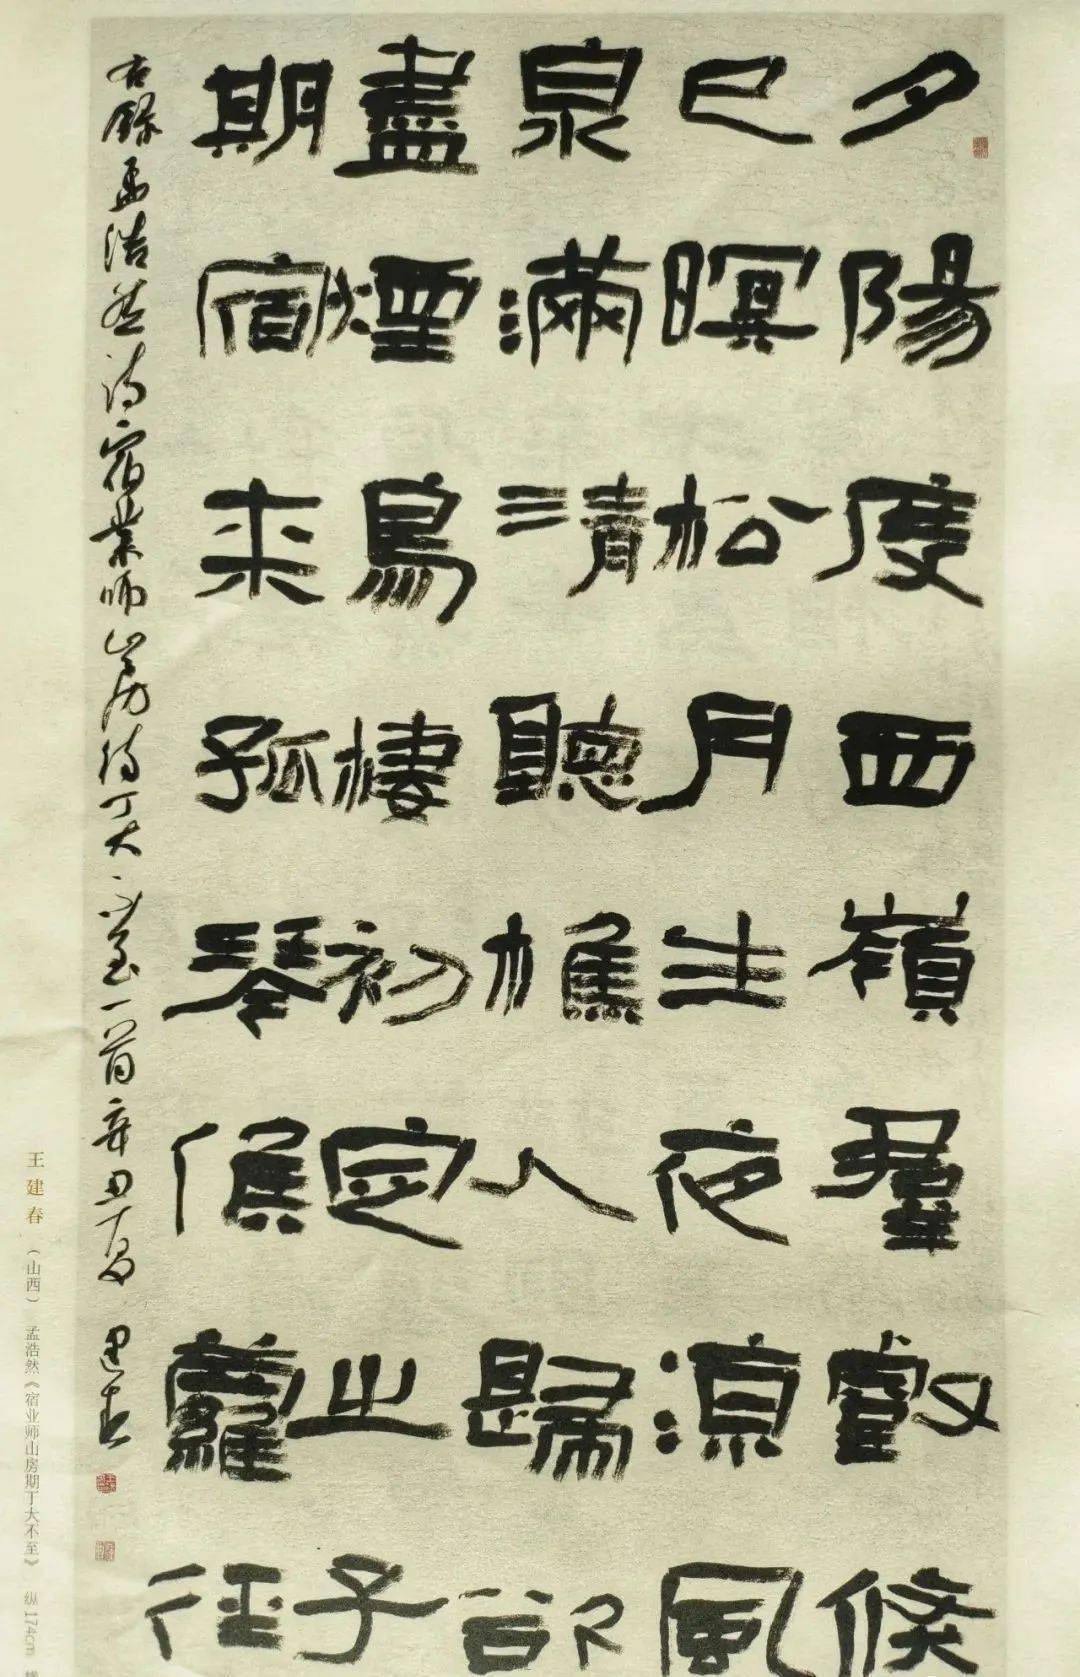 夕陽度西嶺羣壑倏
已暝松月生夜涼風
泉滿清聽樵人歸欲
盡煙鳥棲初定之子
期宿來孤琴候蘿徑
右錄孟浩然詩宿業師山房待丁大不至一首辛丑夏建春
王建春（山西） 孟浩然《宿业师山房期丁大不至》 纵174cm